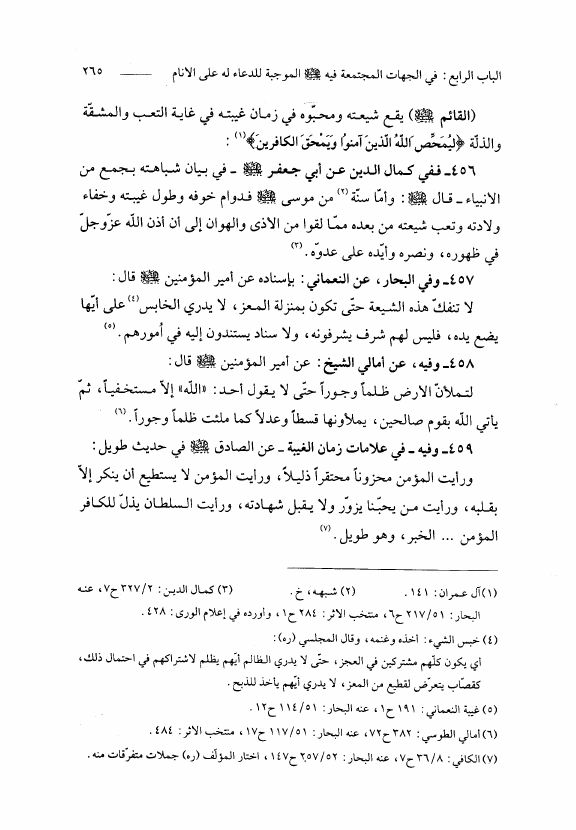 الباب الرابع: في الجهات المجتمعة فيه ﷺ الموجبة للدعاء له على الانام ــــــ ٢٦٥
(القائم ﷺ) يقع شيعته ومحبّوه في زمان غيبته في غاية التعب والمشقّة
والذلّة ﴿لِيُمَحِّصَ اللّهُ الّذينَ آمنُوا وَيَمْحَقَ الكافرينَ﴾(١) :
٤٥٦ـ ففي كمال الدين عن أبي جعفر ﷺ ـ في بيان شباهته بجمع من
الانبياء ـ قال ﷺ: وأمّا سنّة(٢) من موسى ﷺ فدوام خوفه وطول غيبته وخفاء
ولادته وتعب شيعته من بعده ممّا لقوا من الاذى والهوان إلى أن أذن اللّه عزّوجلّ
في ظهوره، ونصره وأيّده على عدوّه.(٣)
٤٥٧ـ وفي البحار، عن النعماني: بإسناده عن أمير المؤمنين ﷺ قال:
لا تنفكّ هذه الشيعة حتّى تكون بمنزلة المعز، لا يدري الخابس(٤) على أيّها
يضع يده، فليس لهم شرف يشرفونه، ولا سناد يستندون إليه في اُمورهم.(٥)
٤٥٨ـ وفيه، عن أمالي الشيخ: عن أمير المؤمنين ﷺ قال:
لتملأنّ الارض ظلماً وجوراً حتّى لا يقول أحد: «اللّه» إلاّ مستخفياً، ثمّ
يأتي اللّه بقوم صالحين، يملاونها قسطاً وعدلاً كما ملئت ظلماً وجوراً.(٦)
٤٥٩ـ وفيه ـ في علامات زمان الغيبة ـ عن الصادق ﷺ في حديث طويل:
ورأيت المؤمن محزوناً محتقراً ذليلاً، ورأيت المؤمن لا يستطيع أن ينكر إلاّ
بقلبه، ورأيت من يحبّنا يزوّر ولا يقبل شهادته، ورأيت السلطان يذلّ للكافر
المؤمن ... الخبر، وهو طويل.(٧)
(١) آل عمران: ١٤١. (٢) شبهه، خ. (٣) كمال الدين: ٣٢٧/٢ ح٧، عنه
البحار: ٢١٧/٥١ ح٦، منتخب الاثر: ٢٨٤ ح١، وأورده في إعلام الورى: ٤٢٨.
(٤) خبس الشيء: أخذه وغنمه، وقال المجلسي (ره):
أي يكون كلّهم مشتركين في العجز، حتّى لا يدري الظالم أيّهم يظلم لاشتراكهم في احتمال ذلك،
كقصّاب يتعرّض لقطيع من المعز، لا يدري أيّهم يأخذ للذبح.
(٥) غيبة النعماني: ١٩١ ح١، عنه البحار: ١١٤/٥١ ح١٢.
(٦) أمالي الطوسي: ٣٨٢ ح٧٢، عنه البحار: ١١٧/٥١ ح١٧، منتخب الاثر: ٤٨٤.
(٧) الكافي: ٣٦/٨ ح٧، عنه البحار: ٢٥٧/٥٢ ح١٤٧، اختار المؤلّف (ره) جملات متفرّقات منه.